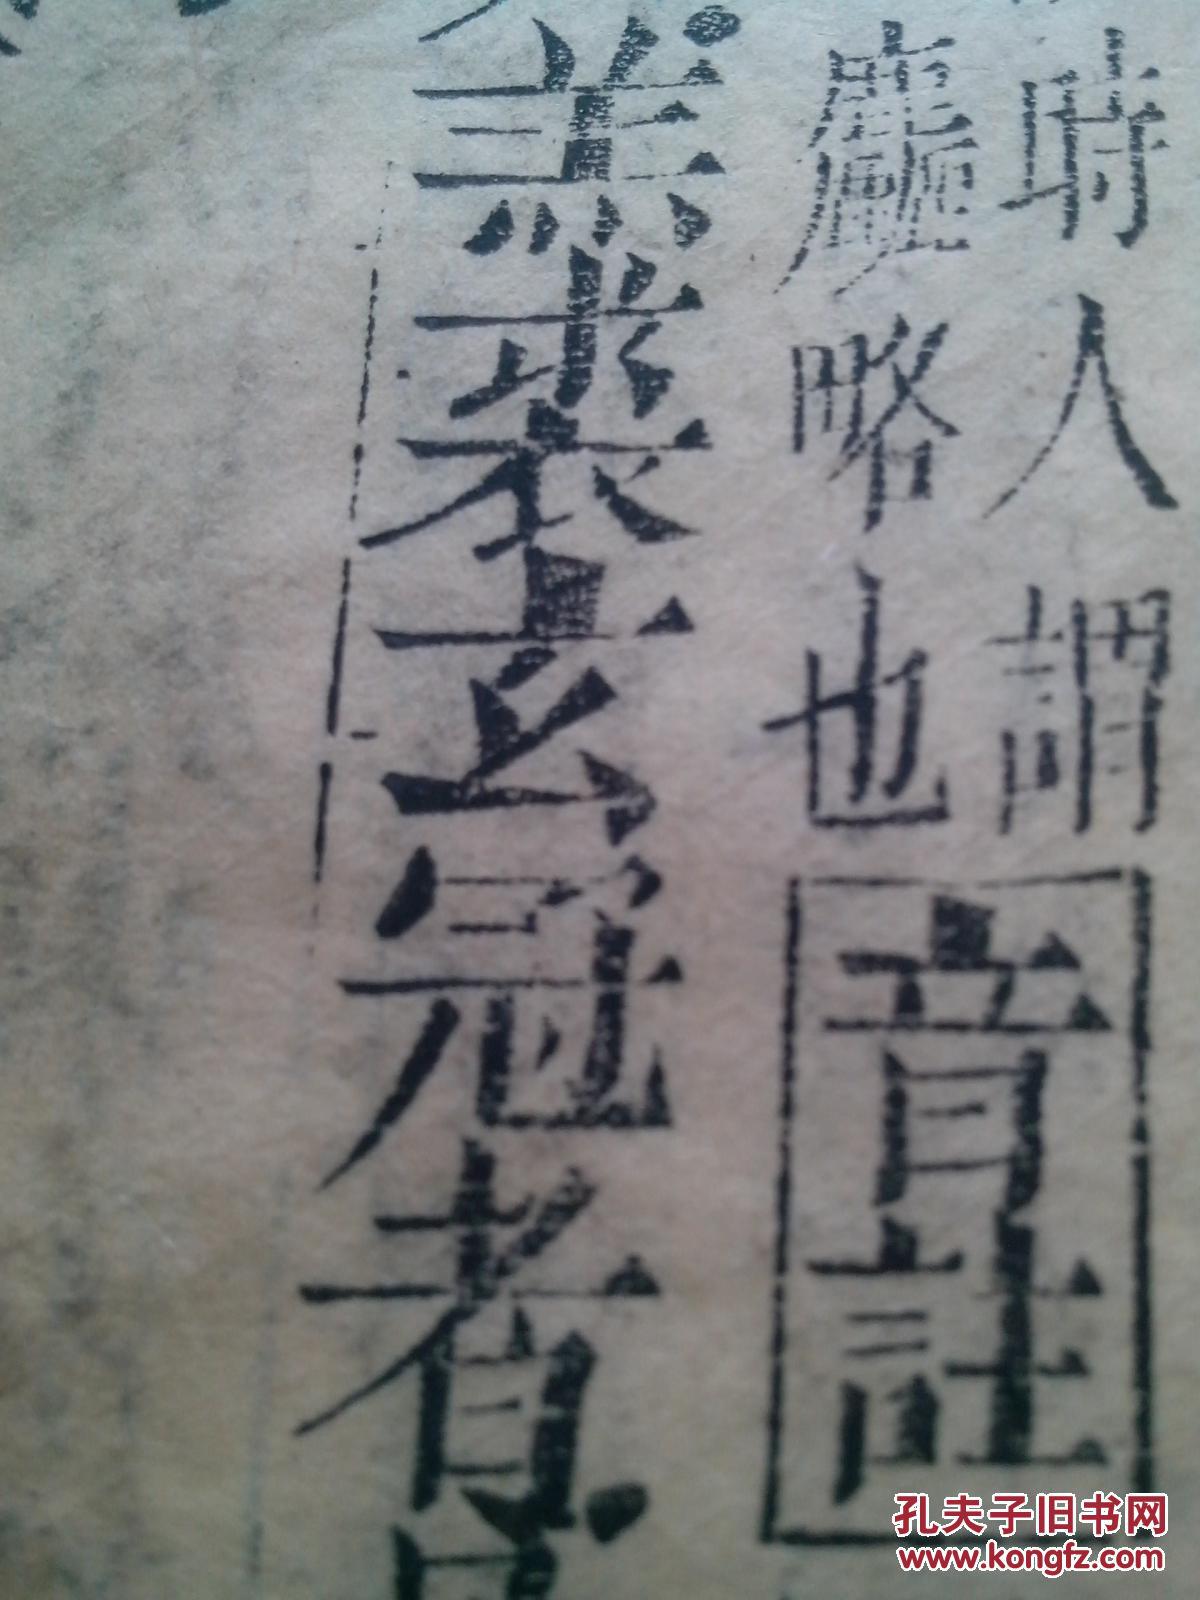 時人謂
麤略也
音註
羔裘玄冠者
孔夫子旧书网
www.kongfz.com